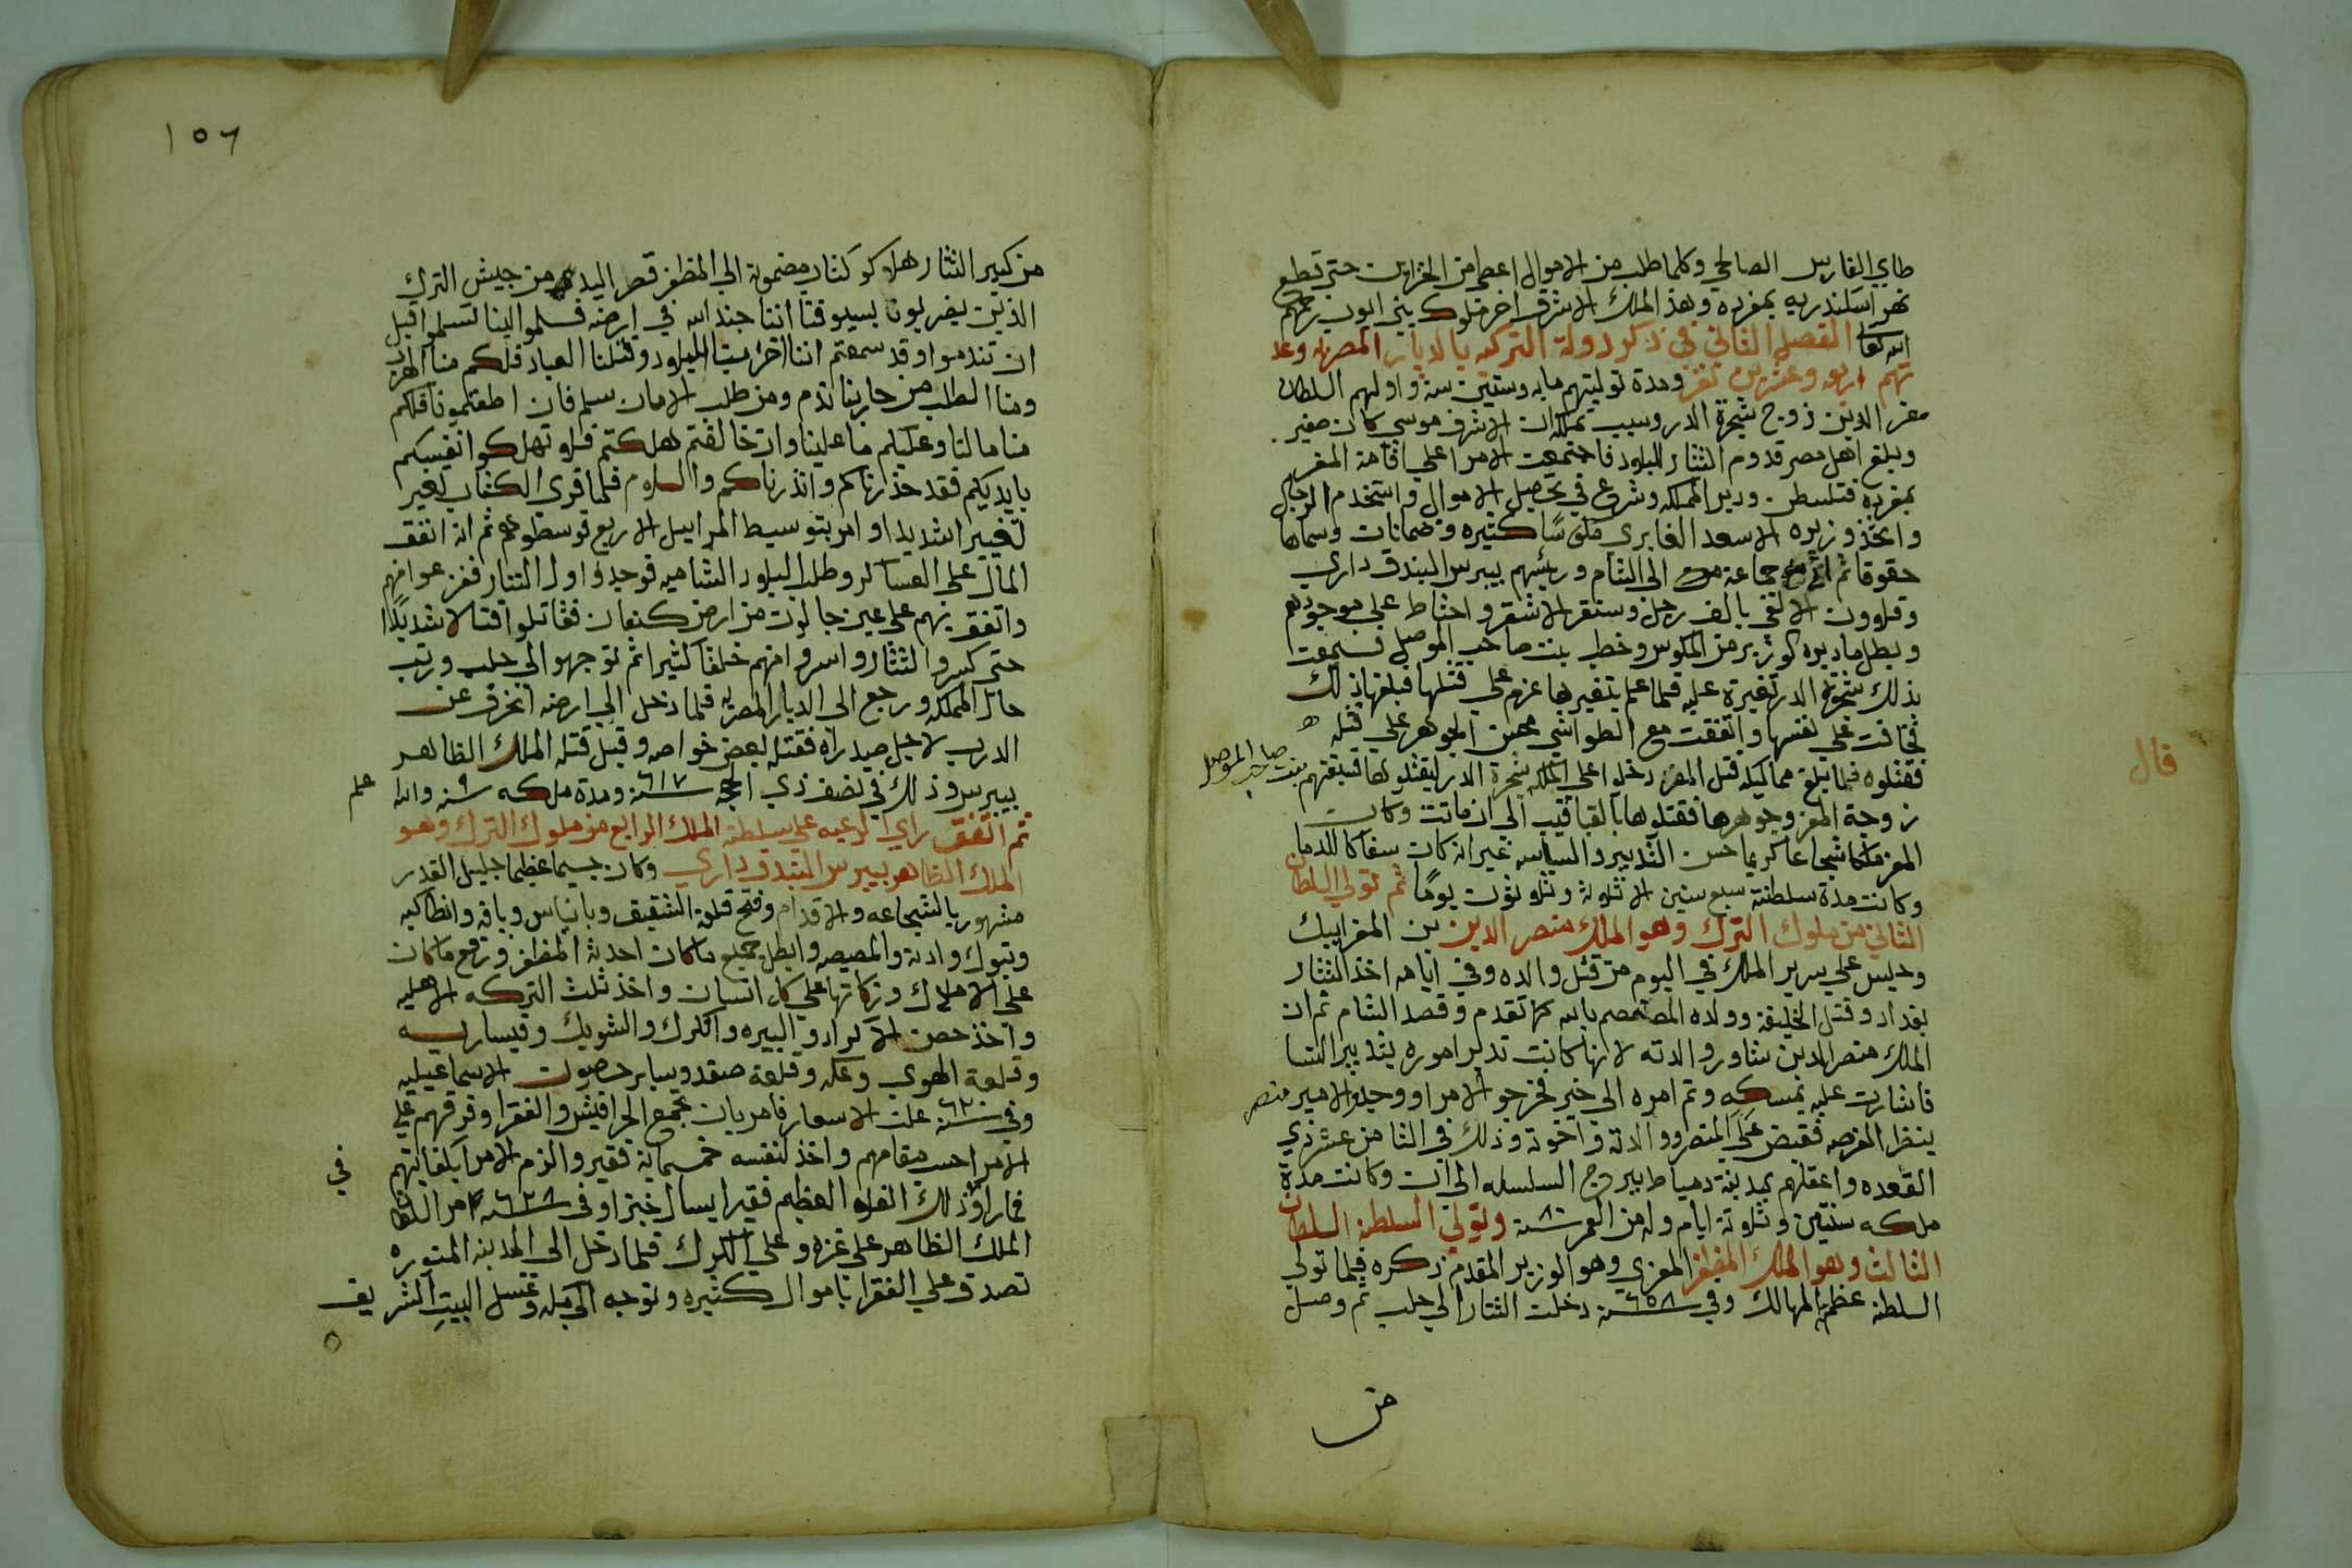 طاي الفارس الصالحي وكلما طلب من الاموال اعطي من الخزاين حتي قطع
نهر اسكندريه بمفرده وهذ الملك الاشرف اخر ملوك بني ايوب رحمهم
الله تعالي الفصل الثاني في ذكر دولة التركيه بالديار المصريه وعد
تهم اربعه وعشرين نفر ومدة توليتهم مايه وستين سنه واولهم السلطان
معز الدين زوج شجرة الدر وسبب تملكه ان الاشرف موسي كان صغير
وبلغ اهل مصر قدوم التتار للبلاد فاجتمعت الامرا علي اقامة المعز
بمفرده فتسلطن ودبر المملكه وشرع في تحصيل الاموال واستخدم الرجال
واتخذ وزيره الاسعد الفايزي مكوسًا كثيره وضمانات وسماها
حقوقا ثم جماعة الي الشام ورئيسهم بيبرس البندقداري
وقلاوون الالفي بالف رجل وسنقر الاشقر واحتاط علي موجودهم
وبطل ما دبره الوزير من المكوس وخطب بنت صاحب الموصل فسمعت
بذلك شجرة الدر تغيرة عليه فلما علم بتغيرها عزم علي قتلها فبلغها ذلك
فخافت علي نفسها واتفقت مع الطواشي محسن الجوهر علي قتله
فقتلوه فلما بلغ مماليكه قتل المعز دخلوا علي الملكه شجرة الدر ليقتلوها فسبقتهم بنت صاحب الموصل
زوجة المعز وجوهرها فقتلوها بالقباقيب الي ان ماتت وكان
المعز ملكا شجاعا كريما حسن التدبير والسياسه غير انه كان سفاكا للدما
وكانت مدة سلطنته سبع سنين الا ثلاثة وثلاثون يومًا ثم تولي السلطان
الثاني من ملوك الترك وهو الملك منصر الدين بن المعز ايبك
وجلس علي سرير الملك في اليوم من قتل والده وفي ايامه اخذ التتار
بغداد وقتل الخليفة وولاده المعتصم بالله كما تقدم وقصد الشام ثم ان
الملك منصر الدين شاور والدته لانها كانت تدبر اموره بتدبير النسا
فاشارت عليه بمسكه وتم امره الي خبر فخرجو الامرا ووجدو الامير منتصر
ينظر الفرصه فقبض علي المنصر ووالدته واخوته وذلك في الثامن عشر ذي
القعده واعقلهم بمدينة دمياط ببروج السلسله الي ان وكانت مدة
ملكه سنتين وثلاثة ايام وله من العمر سنة ٨٠ وتولي السلطنه السلطان
الثالث وهو الملك المظفر المعزي وهو الوزير المقدم ذكره فلما تولي
السلطنه عظم الممالك وفي سنة ٦٥٨ دخلت التتار الي حلب ثم وصل
من
قال
١٥٦
من كبير التتار هلاكو كتاب مضمونه الي المظفر قصر اليد من جيش الترك
الذين يضربون بسيوفنا اننا جند الله في ارضه فسلموا الينا تسلموا قبل
ان تندموا وقد سمعتم اننا اخربنا البلاد وقتلنا العباد فلكم منا الهرب
ومنا الطلب من حاربنا ندم ومن طلب الامان سلم فان اطعتمونا فلكم
منا ما لنا وعليكم ما علينا وان خالفتم هلكتم فلا تهلكوا انفسكم
بايديكم فقد حذرناكم وانذرناكم والسلام فلما قري الكتاب تغير
تغيير شديدا وامر بتوسيط المراسيل الاربع فوسطوهم ثم انه انفق
المال علي العساكر وطلب البلاد الشاميه فوجدوا اول التتار
واتفق بهم علي عين جالوت من ارض كنعان فقاتلوا قتالا شديدًا
حتي كسروا التتار واسروا منهم خلقا كثيرا ثم توجهوا الي حلب ورتب
حال المملكه ورجع الي الديار المصريه فلما دخل الي ارضه انحرف عن
الدرب لاجل صيد راه فقتله بعض خواصه وقيل قتله الملك الظاهر
بيبرس وذلك في نصف ذي الحجه سنة ٦١٧ ومدة ملكه سنه ٩ والله علم
ثم اتفق راي الرعيه علي سلطنة الملك الرابع من ملوك الترك وهو
الملك الظاهر بيبرس البندقداري وكان جسيما عظيما جليل القدر
مشهور بالشجاعه والاقدام وفتح قلعة الشقيف وبانياس ويافه وانطاكيه
وتبوك وادنه والمصيصه وابطل جميع ما كان احدثه المظفر ورفع ما كان
علي الاملاك وزكاتها علي كل انسان واخذ ثلث التركه الاهليه
واخذ حصن الاكراد والبيره والكرك والشوبك وقيساريه
وقلعة الهوي وعكه وقلعة صفد وساير حصون الاسماعيليه
وفي سنة ٦٢٠ غلت الاسعار فامر بان تجمع الحرافيش والفقرا وفرقهم علي
الامرا حسب مقامهم واخذ لنفسه خمسماية فقير والزم الامرا بكفايتهم في
فما راو ذلك الغلاء العظيم فقيرا يسال خبزا وفي سنة ٦٢٨ مر السلطان
الملك الظاهر علي غزه وعلي الكرك فلما دخل الي المدينه المنوره
تصدق علي الفقرا باموال كثيره وتوجه الي مكه وغسل البيت الشريف